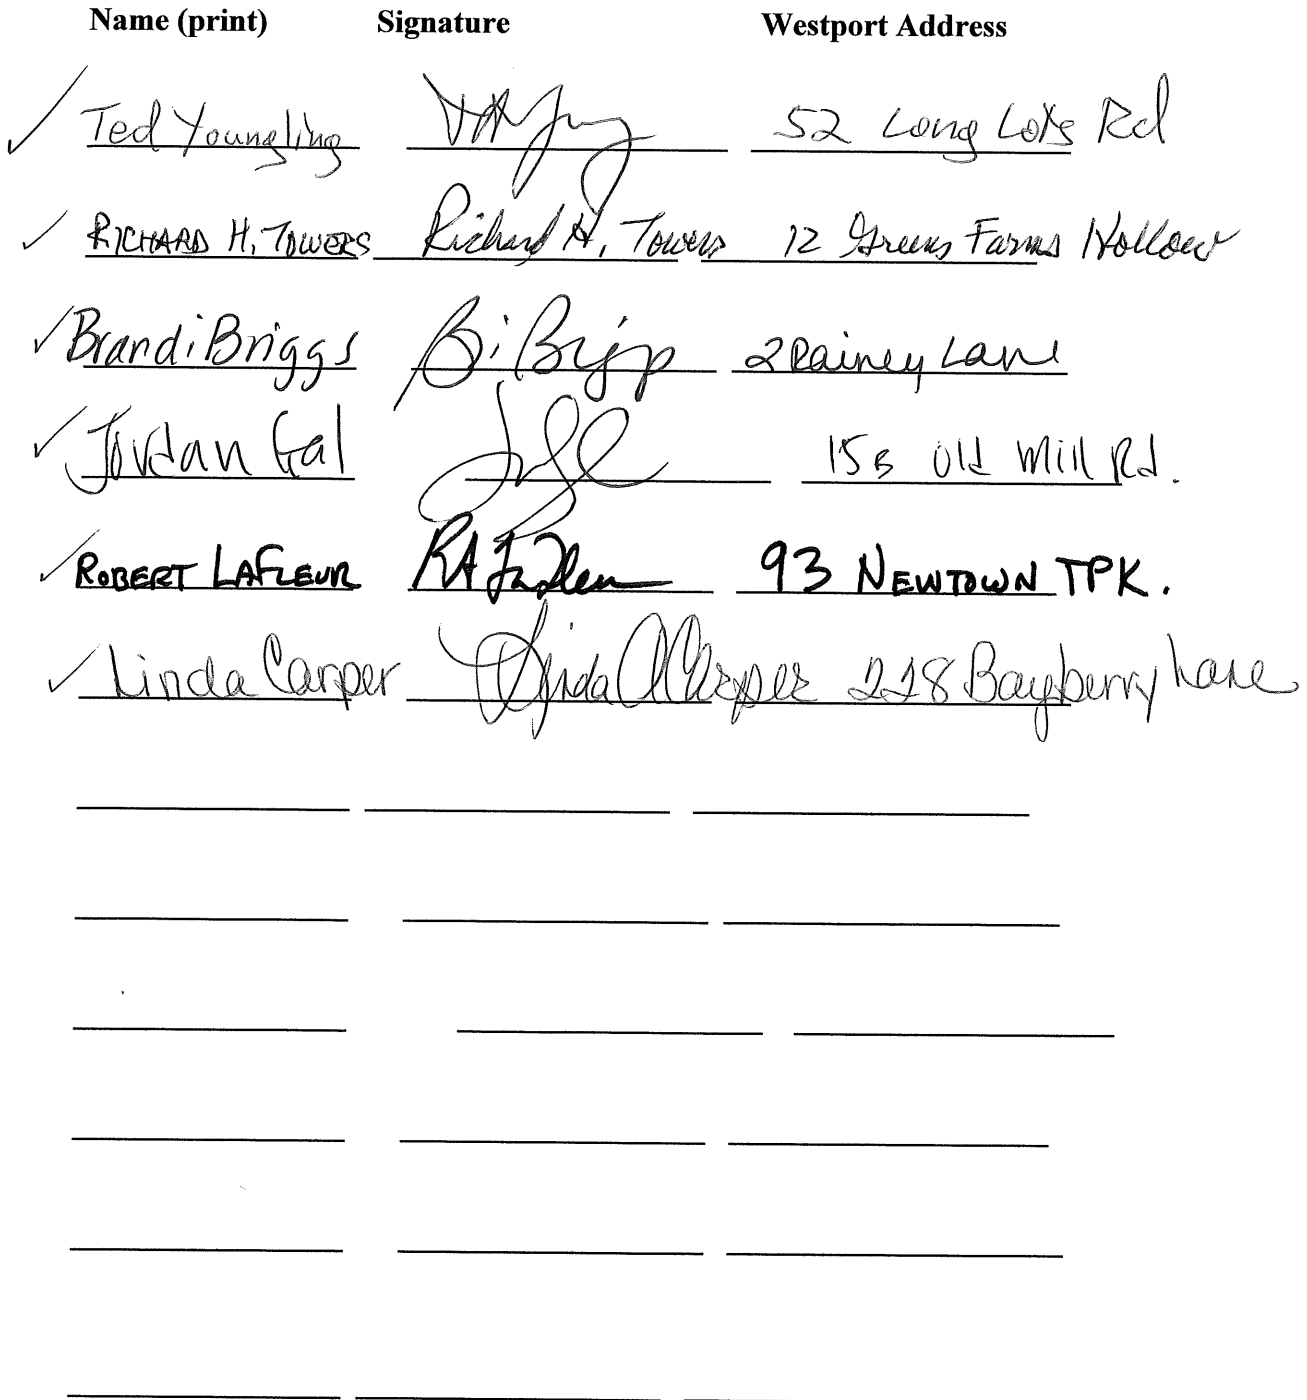 Name (print) Signature Westport Address
Ted Youngling 52 Long Lots Rd
RICHARD H. TOWERS Richard H. Towers 12 Greens Farms Hollow
Brandi Briggs Bi Briggs 2 Rainey Lane
Jordan Gal 15B Old Mill Rd.
ROBERT LAFLEUR RA LaFleur 93 NEWTOWN TPK.
Linda Carper Linda A Carper 228 Bayberry Lane